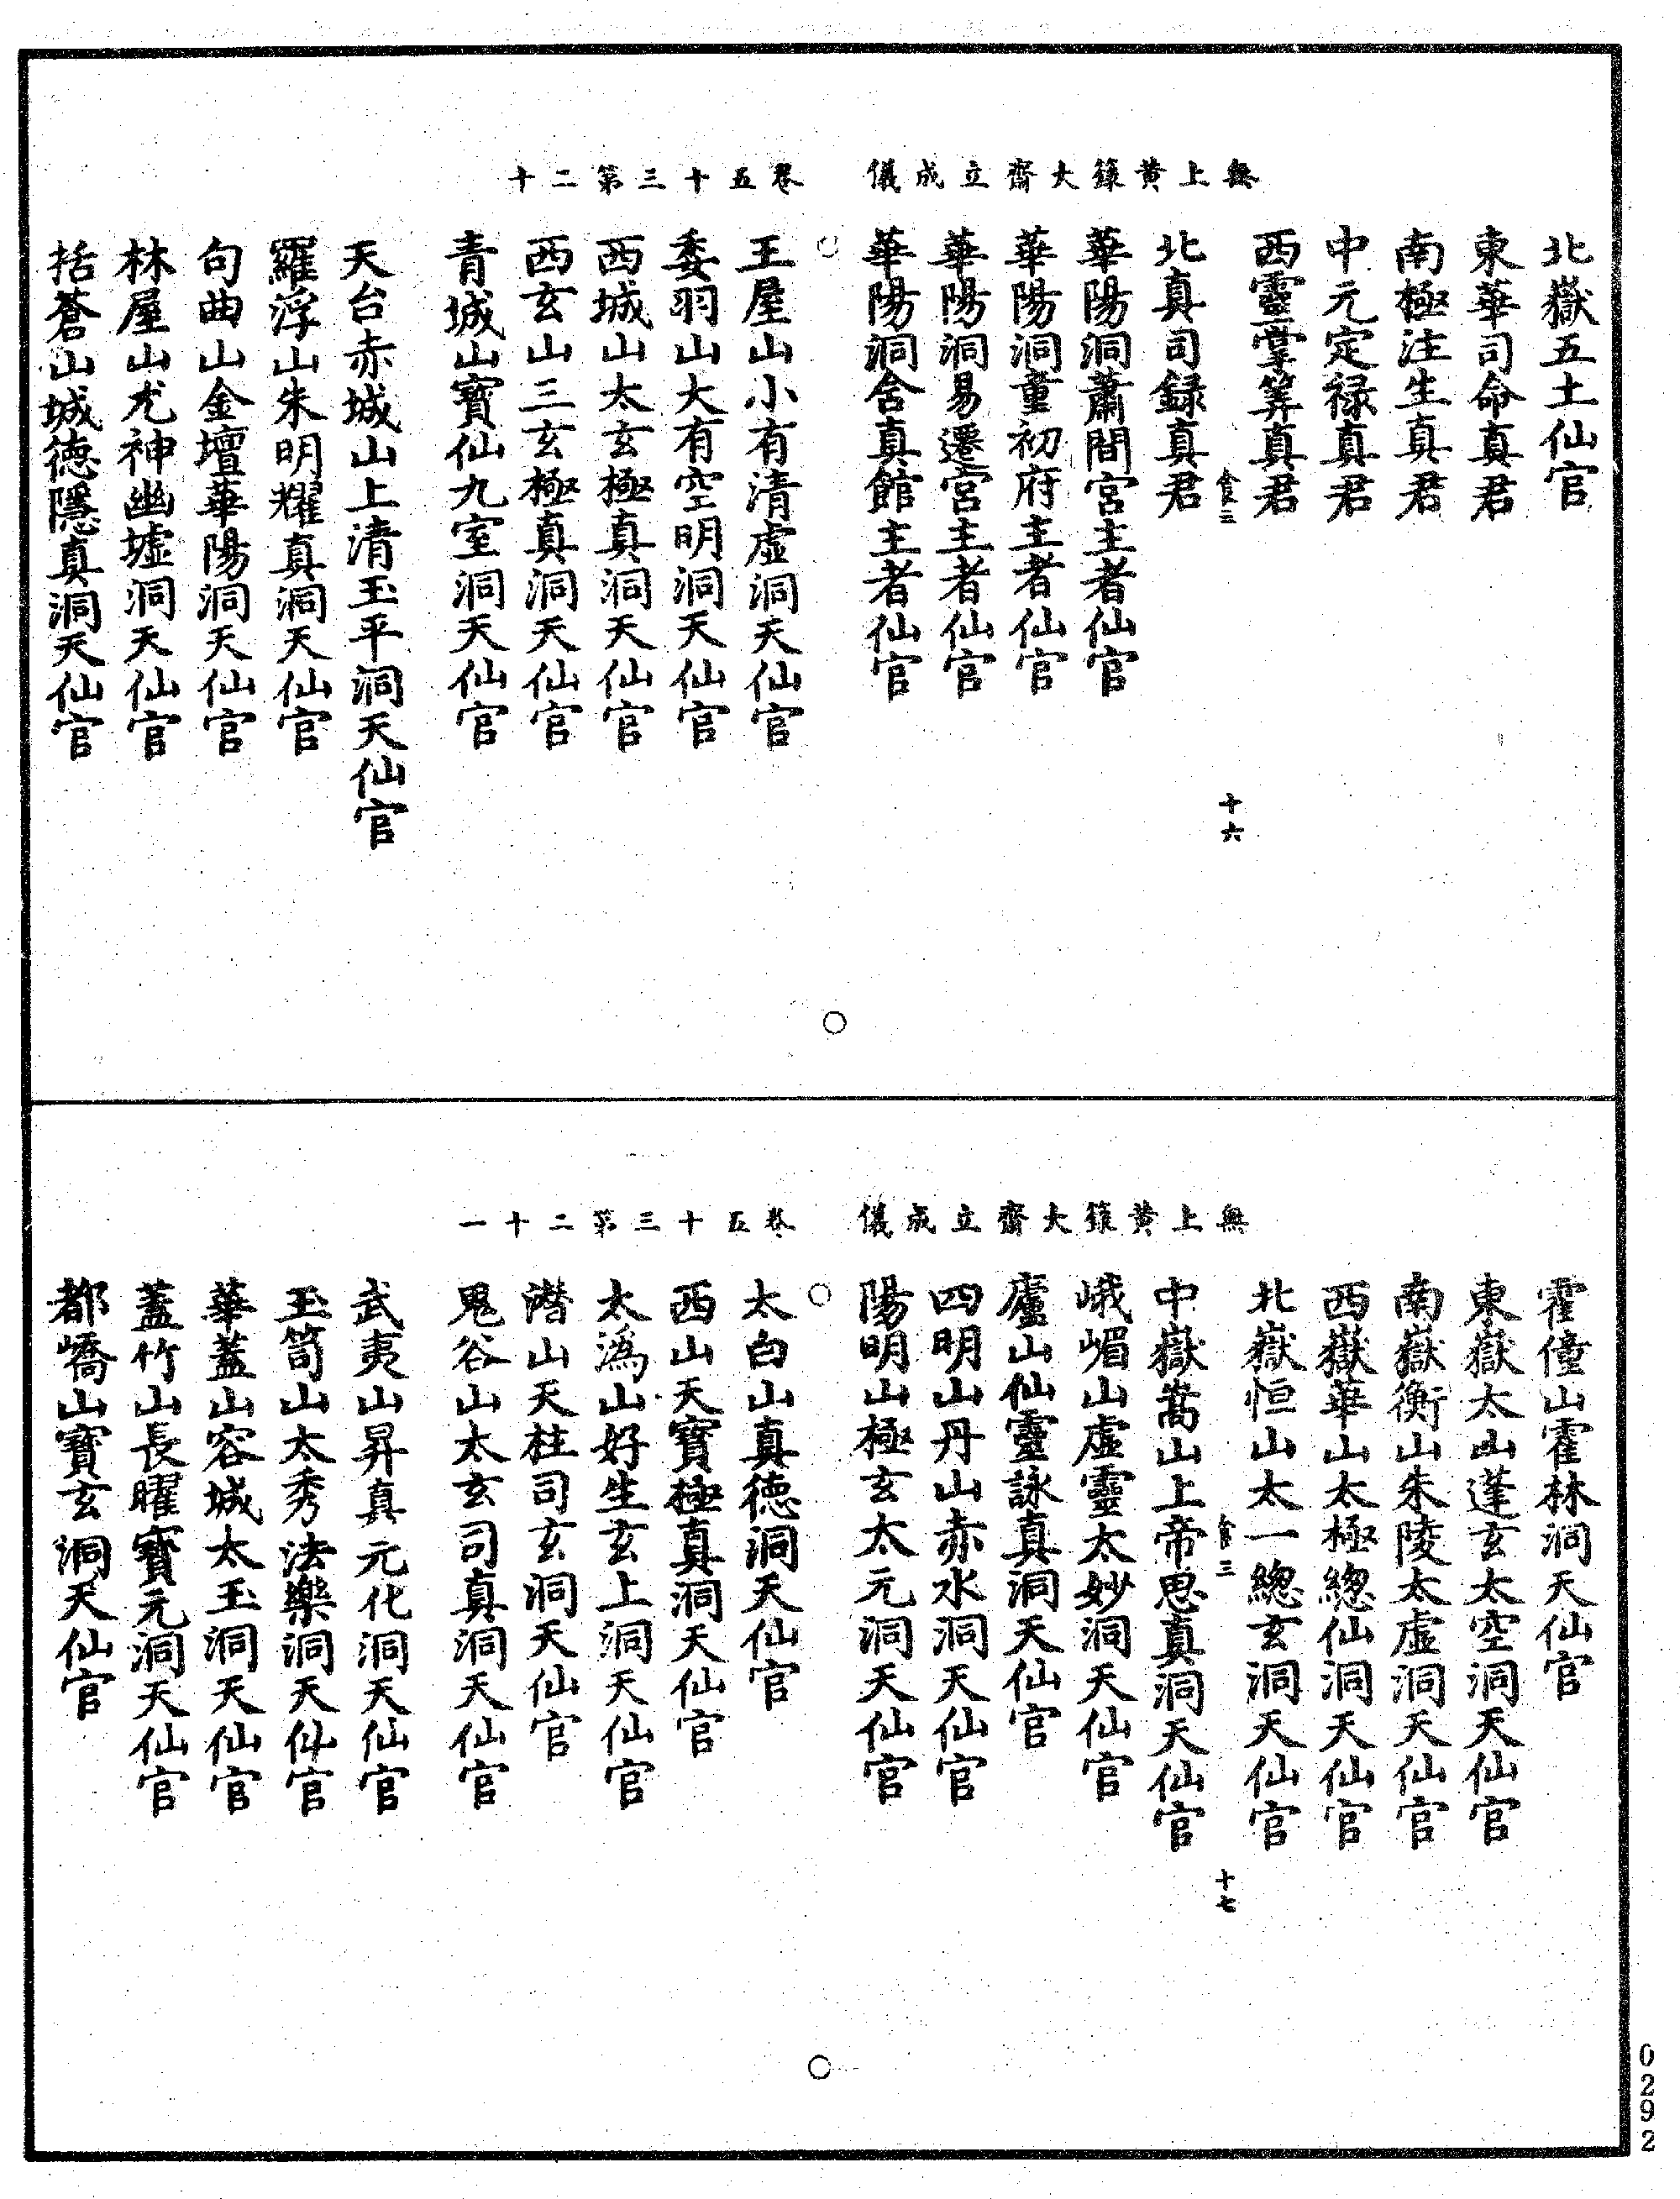 無上黃籙大齋立成儀　卷五十三第二十
北嶽五土仙官
東華司命真君
南極注生真君
中元定祿真君
西靈掌筭真君
食三　十六
北真司録真君
華陽洞蕭閒宮主者仙官
華陽洞童初府主者仙官
華陽洞易遷宮主者仙官
華陽洞含真館主者仙官
王屋山小有清虛洞天仙官
委羽山大有空明洞天仙官
西城山太玄極真洞天仙官
西玄山三玄極真洞天仙官
青城山寶仙九室洞天仙官
天台赤城山上清玉平洞天仙官
羅浮山朱明耀真洞天仙官
句曲山金壇華陽洞天仙官
林屋山尤神幽墟洞天仙官
括蒼山城德隱真洞天仙官
無上黃籙大齋立成儀　卷五十三第二十一
霍僮山霍林洞天仙官
東嶽太山蓬玄太空洞天仙官
南嶽衡山朱陵太虛洞天仙官
西嶽華山太極總仙洞天仙官
北嶽恒山太一總玄洞天仙官
食三　十七
中嶽嵩山上帝思真洞天仙官
峨嵋山虛靈太妙洞天仙官
廬山仙靈詠真洞天仙官
四明山丹山赤水洞天仙官
陽明山極玄太元洞天仙官
太白山真德洞天仙官
西山天寶極真洞天仙官
太溈山好生玄上洞天仙官
潛山天柱司玄洞天仙官
鬼谷山太玄司真洞天仙官
武夷山昇真元化洞天仙官
玉笥山太秀法樂洞天仙官
華蓋山容城太玉洞天仙官
蓋竹山長曜寶元洞天仙官
都嶠山寶玄洞天仙官
0292